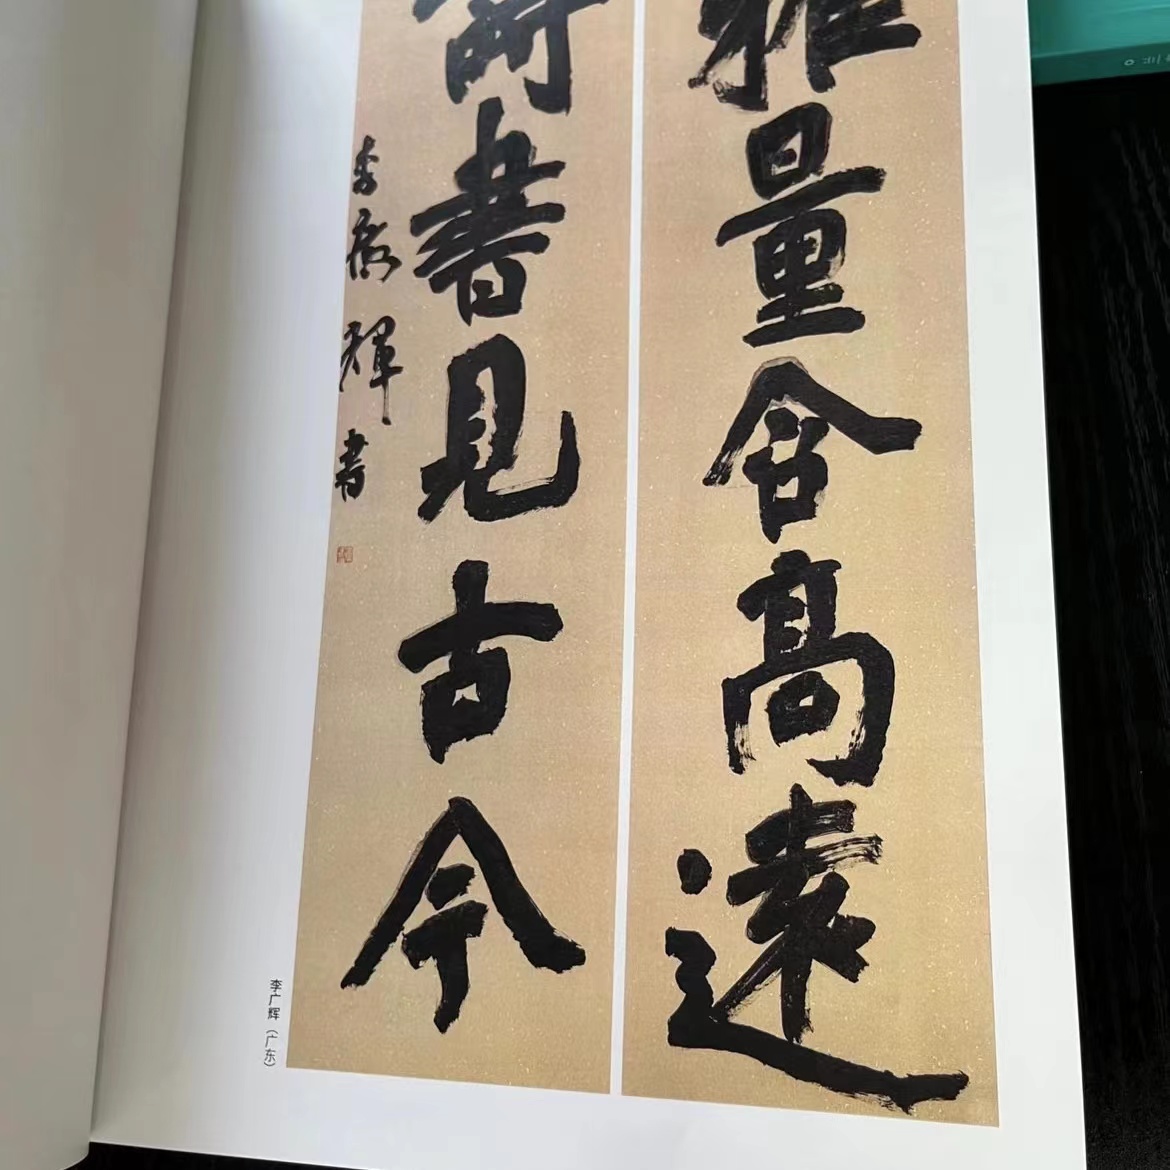 雅量含高遠
書見古今
李廣輝書
李广辉（广东）